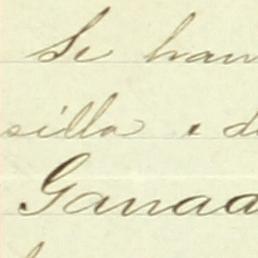 Se han
silla
Ganad